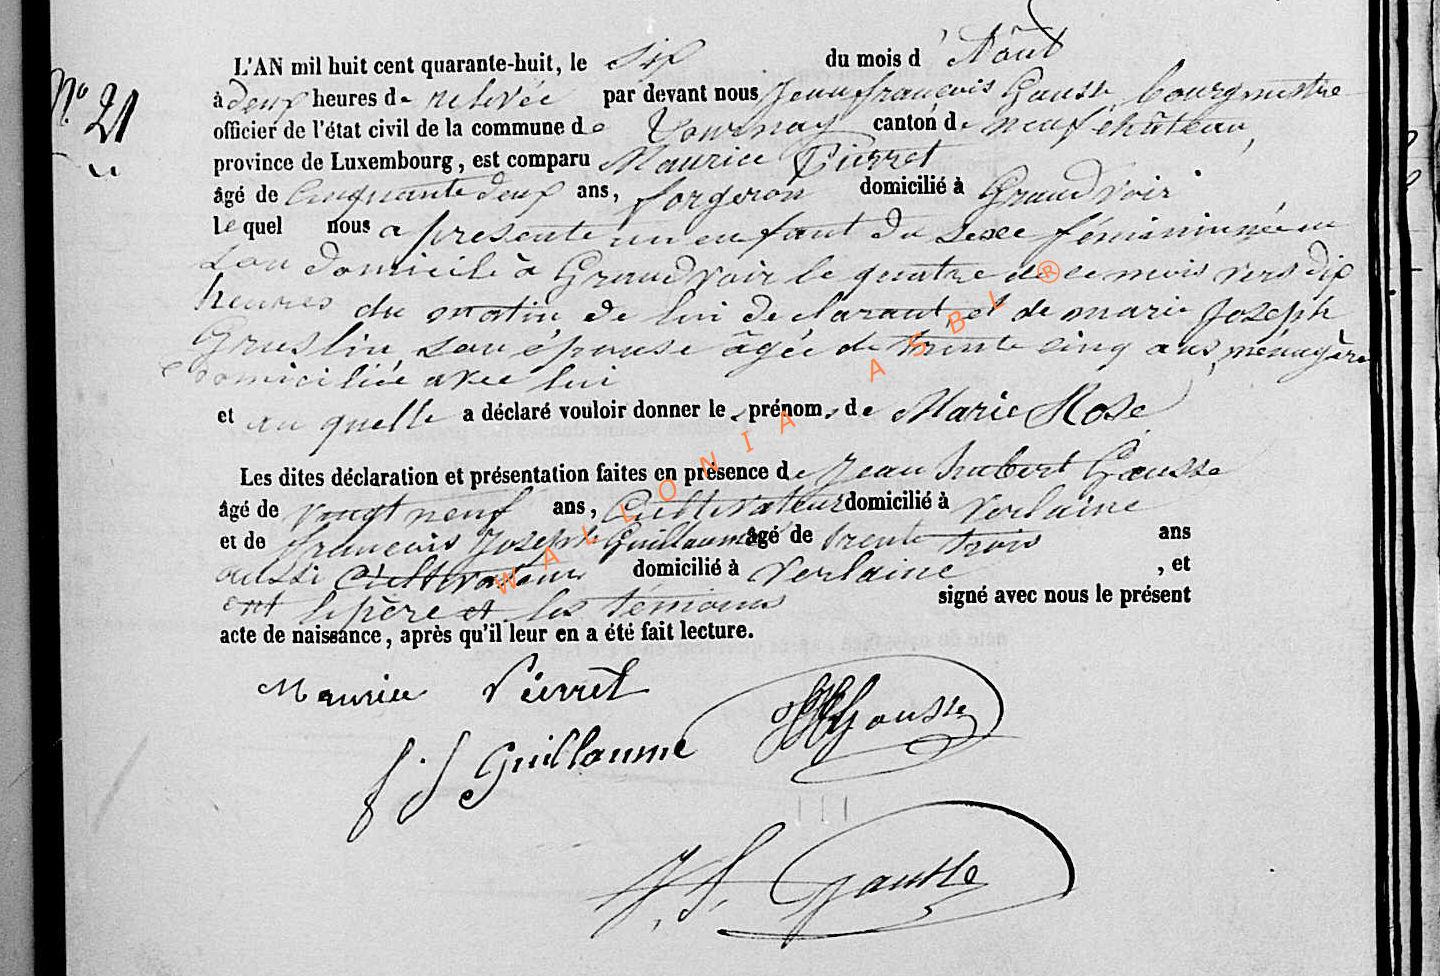 N.° 21
L'AN mil huit cent quarante-huit, le Six du mois d' Août
à deux heures de relevée par devant nous Jean françois Gausse bourgmestre
officier de l'état civil de la commune de Tournay canton de neufchâteau,
province de Luxembourg, est comparu Maurice Pierret
âgé de Cinquante deux ans, forgeron domicilié à Grandvoir
le quel nous a présenté un enfant du sexe féminin née en
son domicile à Grandvoir le quatre de ce mois vers dix
heures du matin de lui déclarant, et de marie Joseph
Gruslin, son épouse âgée de trente cinq ans, ménagère
domiciliée avec lui
et au quelle a déclaré vouloir donner les prénoms de Marie Rose
Les dites déclaration et présentation faites en présence de Jean hubert Gousse
âgé de vingt neuf ans, Cultivateur domicilié à Verlaine
et de françois Joseph Guillaume âgé de trente trois ans
aussi Cultivateur domicilié à Verlaine, et
ont le père et les témoins signé avec nous le présent
acte de naissance, après qu'il leur en a été fait lecture.
Maurice Pierret
JHGousse
f J Guillaume
J. f. Gausse
WALLONIA ASBL ®